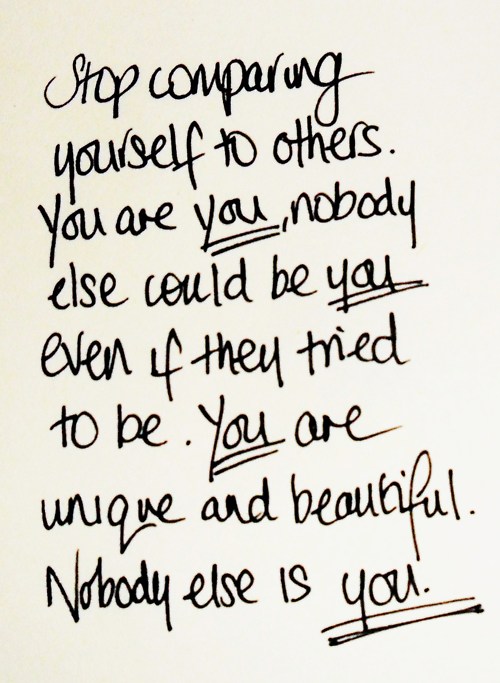 Stop comparing
yourself to others.
You are you, nobody
else could be you
even if they tried
to be. You are
unique and beautiful.
Nobody else is you.